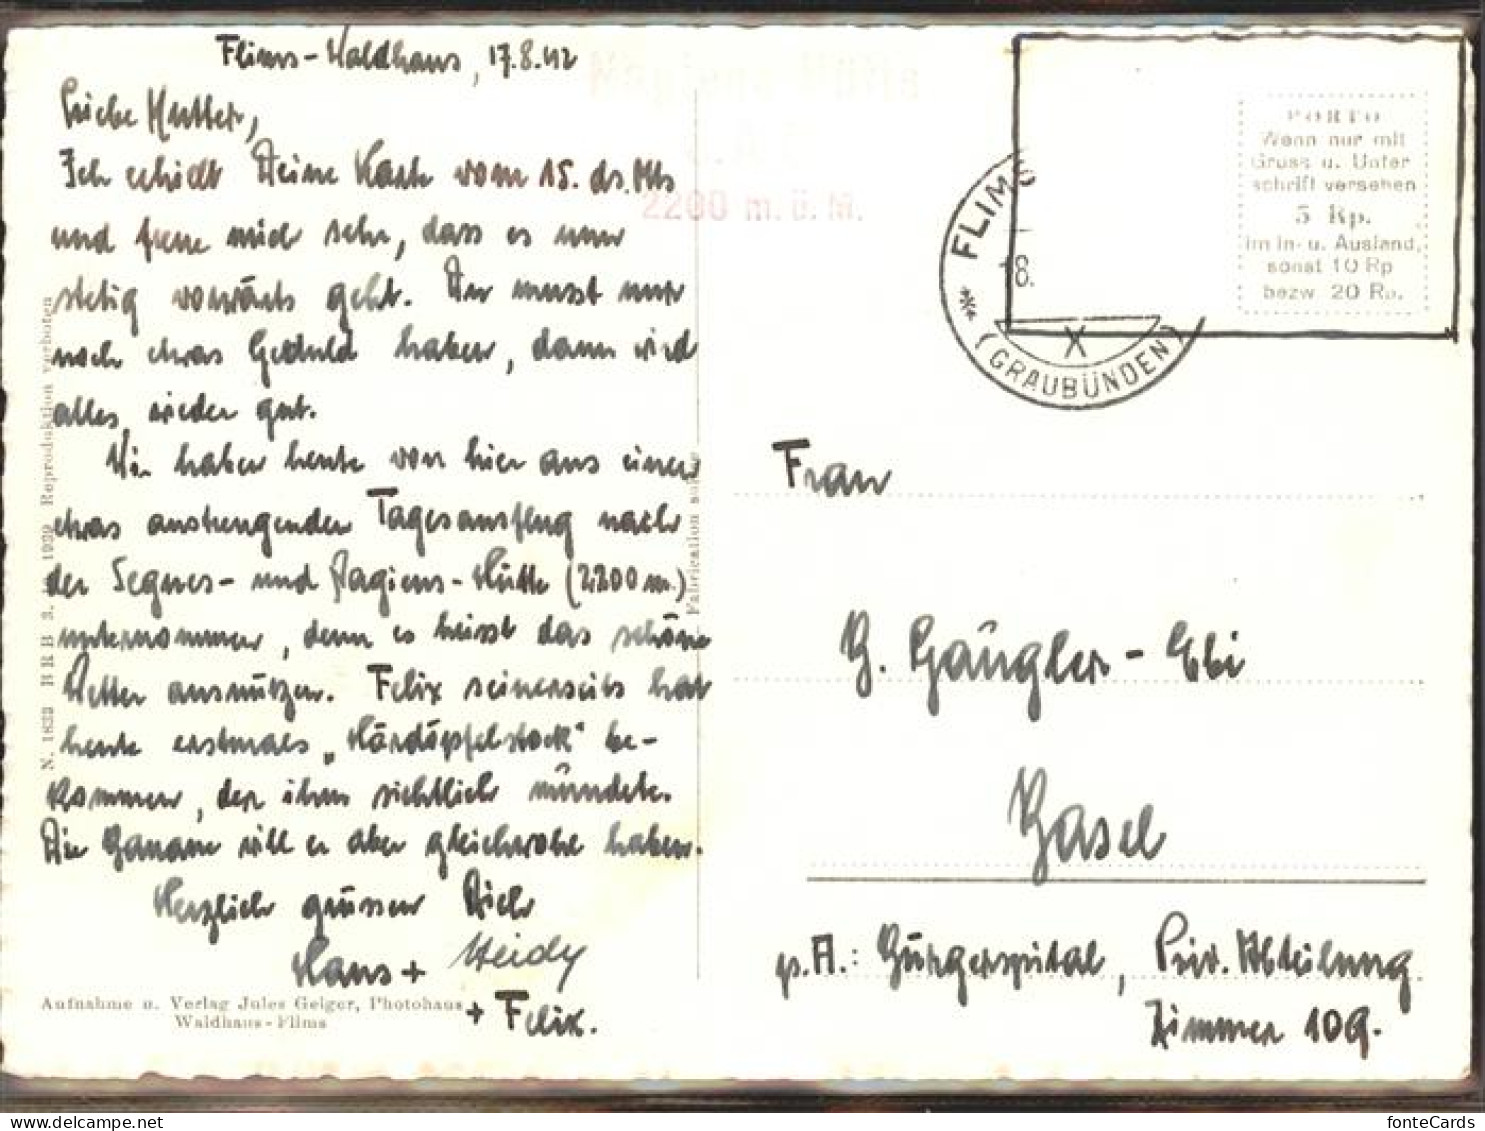 Flims-Waldhaus, 17.8.42
Liebe Mutter,
Ich erhielt Deine Karte vom 15. ds. Mts
und freue mich sehr, dass es nun
stetig vorwärts geht. Du musst nur
noch etwas Geduld haben, dann wird
alles wieder gut.
Wir haben heute von hier aus einen
etwas anstrengenden Tagesausflug nach
der Segnes- und Nagiens-Hütte (2200 m.)
unternommen, denn es heisst das schöne
Wetter ausnützen. Felix seinerseits hat
heute erstmals „Härdöpfelstock" be-
kommen, der ihm sichtlich mundete.
Die Banane will er aber gleichwohl haben.
Herzlich grüssen Dich
Hans + Heidy
+ Felix.
Aufnahme u. Verlag Jules Geiger, Photohaus
Waldhaus-Flims
N. 1833 BRB 3. 1939 Reproduktion verboten
Fabrication
Nagiens Hütte
2200 m. ü. M.
FLIMS
18.
X
(GRAUBÜNDEN)
PORTO
Wenn nur mit
Gruss u. Unter
schrift versehen
5 Rp.
im In- u. Ausland,
sonst 10 Rp
bezw. 20 Rp.
Frau
B. Gängler-Ebi
Basel
p.A.: Bürgerspital, Priv. Abteilung
Zimmer 109.
fonteCards